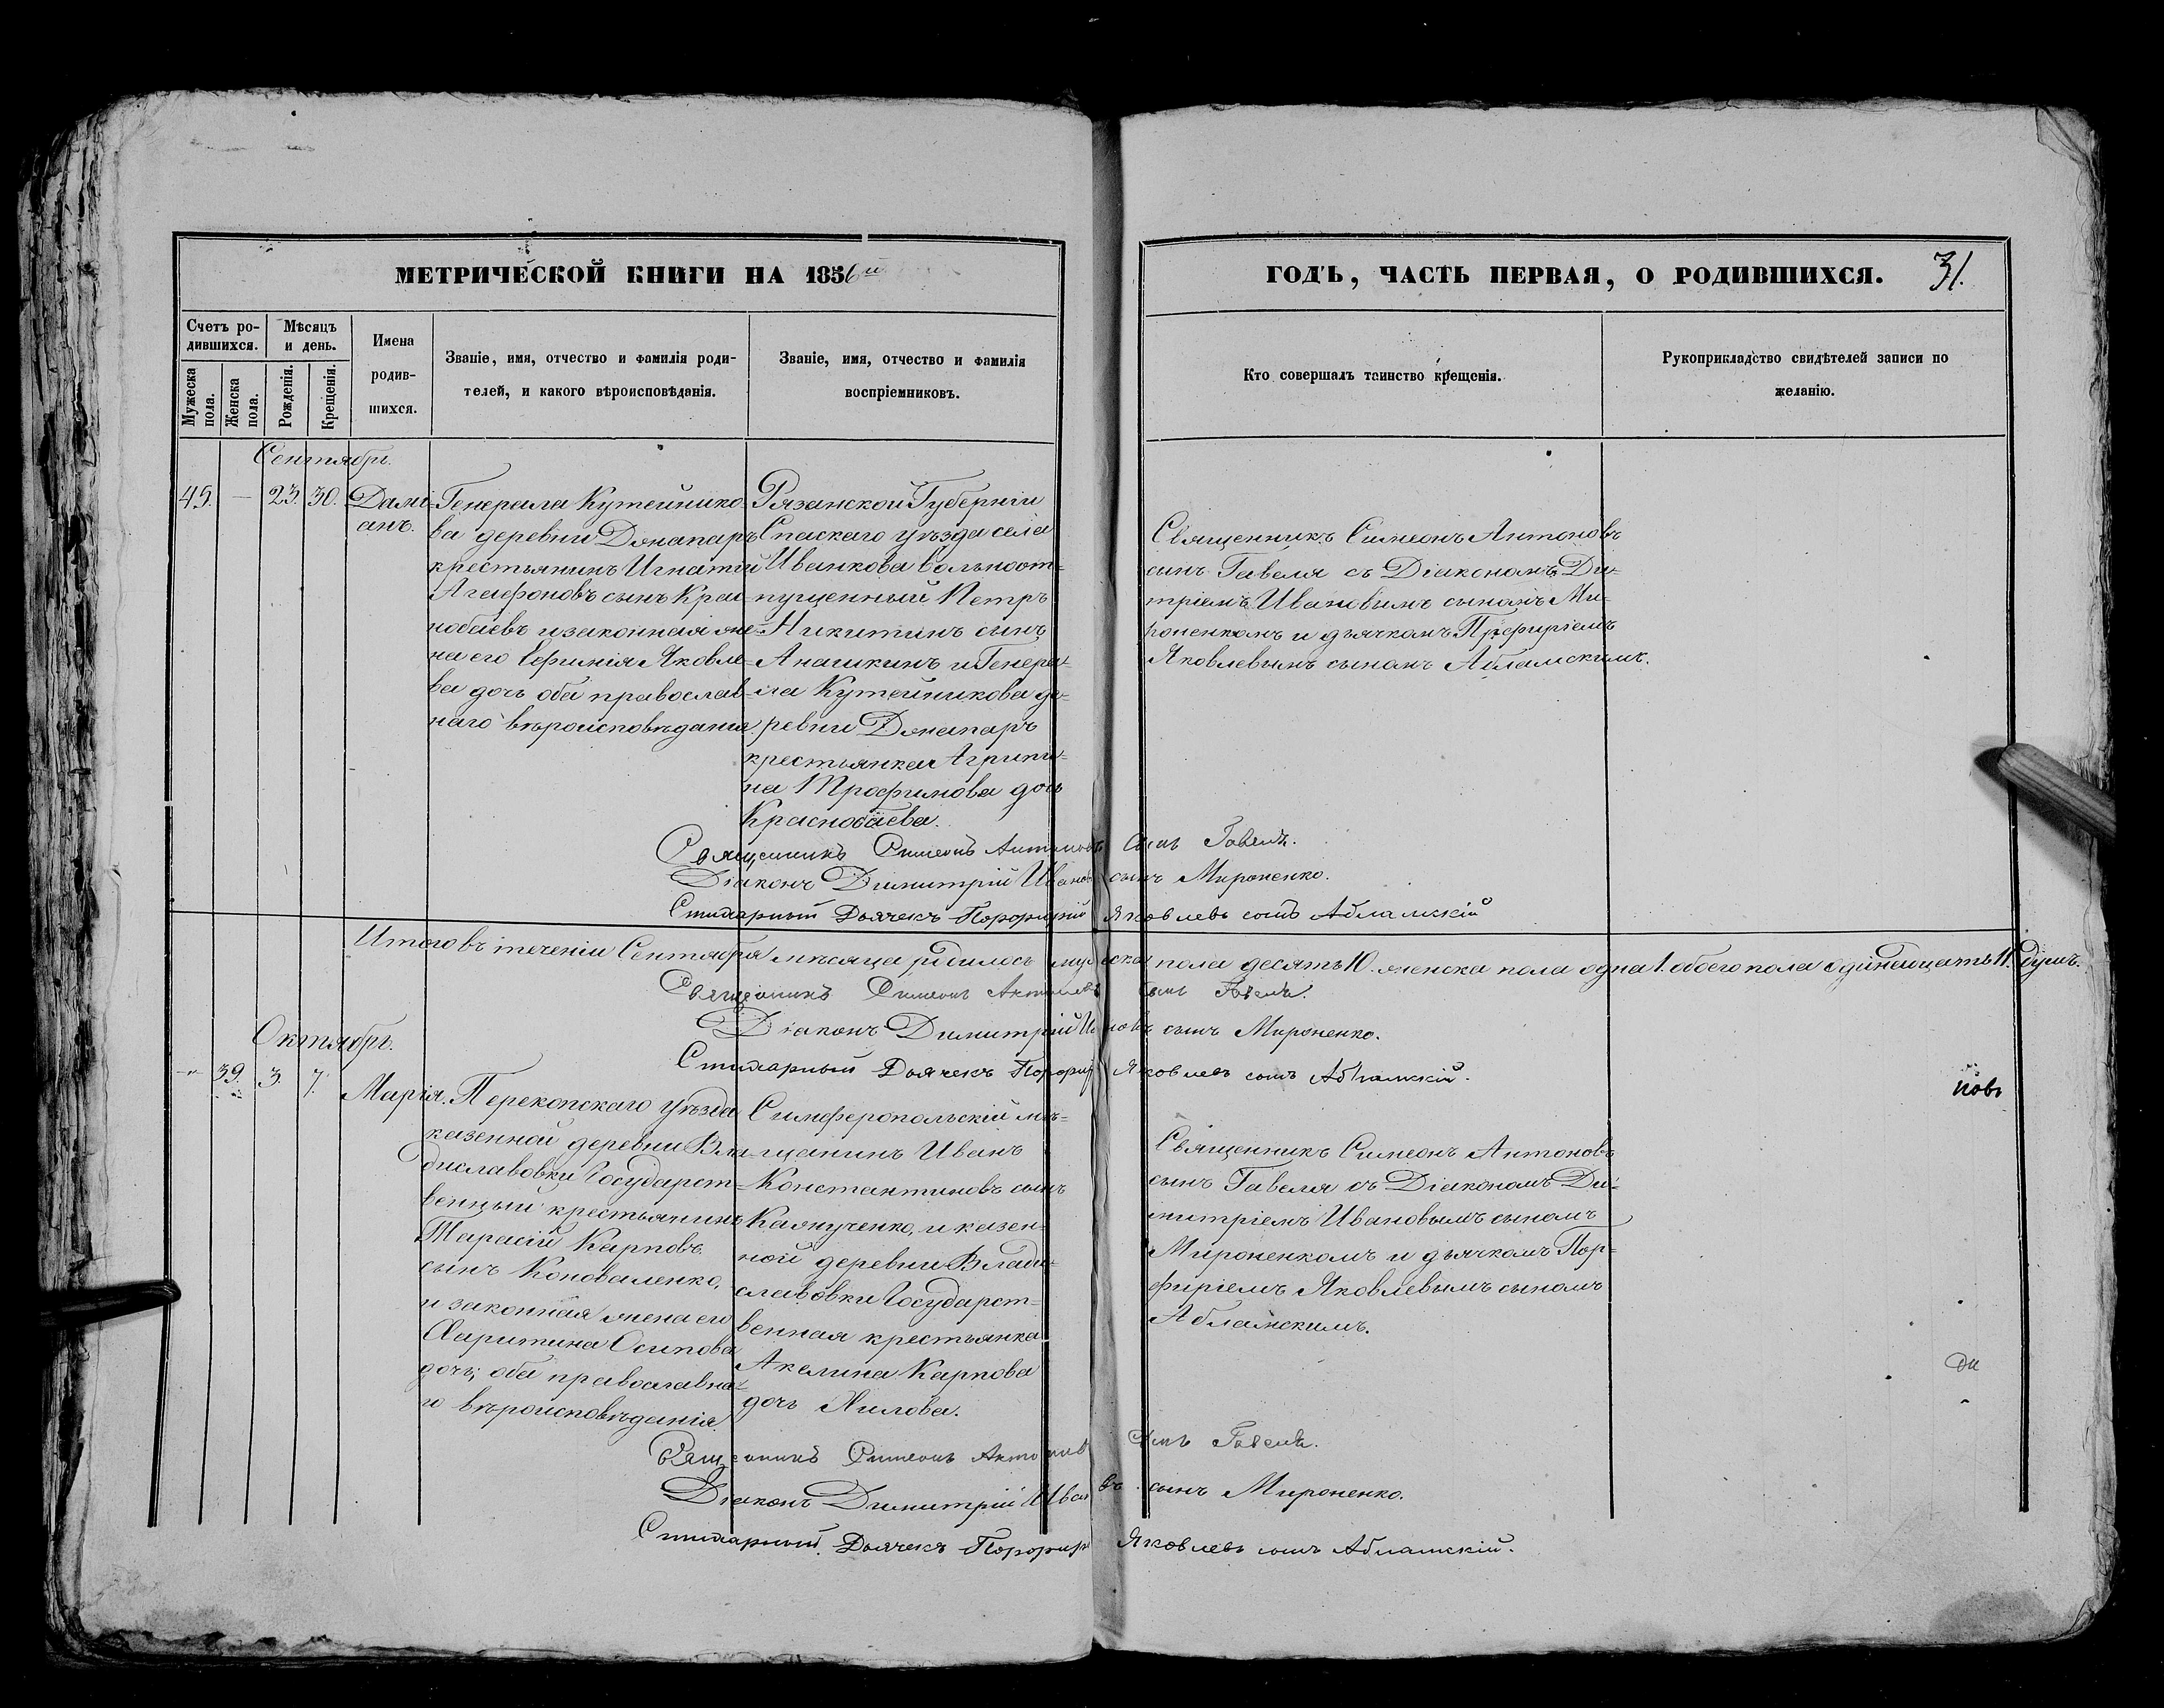 МЕТРИЧЕСКОЙ КНИГИ НА 1856й
ГОДЪ, ЧАСТЬ ПЕРВАЯ, О РОДИВШИХСЯ. 31.
Счетъ ро-
дившихся.
Мѣсяцъ
и день.
Мужеска
пола.
Женска
пола.
Рожденія.
Крещенія.
Имена
родив-
шихся.
Званіе, имя, отчество и фамилія роди-
телей, и какого вѣроисповѣданія.
Званіе, имя, отчество и фамилія
воспріемниковъ.
Кто совершалъ таинство крещенія.
Рукоприкладство свидѣтелей записи по
желанію.
Сентябрь.
45. — 23. 30.
Дамі-
анъ.
Генерала Кутейнико-
ва деревни Джапаръ
крестьянинъ Игнатій
Агафоновъ сынъ Крас-
нобаевъ и законная же-
на его Ефимія Яковле-
ва дочь оба православ-
наго вѣроисповѣданія.
Рязанской Губерніи
Спаскаго уѣзда села
Иванкова вольноот-
пущенный Петръ
Никитинъ сынъ
Анашкинъ и Генера-
ла Кутейникова де-
ревни Джапаръ
крестьянка Агрипи-
на Трофимова дочь
Краснобаева.
Священникъ Симеонъ Антоновъ
сынъ Гавеля съ Діакономъ Ди-
тріемъ Ивановымъ сыномъ Ми-
роненкомъ и дьячкомъ Прфиріемъ
Яковлевымъ сыномъ Абламскимъ.
Священникъ Симеонъ Антоновъ сынъ Гавеля.
Діаконъ Димитрій Иванов сынъ Мироненко.
Стихарный Дьячекъ Порфирій Яковлевъ сынъ Абламскій
Итого въ теченіи Сентября мѣсяца родилось мужеска пола десять 10. женска пола одна 1. обоего пола одинадцать 11. душъ.
Священникъ Симеонъ Антоновъ сынъ Гавеля.
Діаконъ Димитрій Ивановъ сынъ Мироненко.
Стихарный Дьячекъ Порфир Яковлевъ сынъ Абламскій.
Октябрь.
—„ 39. 3. 7.
Марія.
Перекопскаго уѣзда
казенной деревни Вла-
диславовки Государст-
венный крестьянинъ
Тарасій Карповъ
сынъ Коноваленко,
и законная жена его
Харитина Осипова
дочь; оба православна-
го вѣроисповѣданія.
Симферопольскій мѣ-
щанинъ Иванъ
Константиновъ сынъ
Каянученко, и казен-
ной деревни Влади-
славовки Государст-
венная крестьянка
Акелина Карпова
дочь Хилова.
Священникъ Симеонъ Антоновъ
сынъ Гавеля съ Діакономъ Ди-
митріемъ Ивановымъ сыномъ
Мироненкомъ и дьячкомъ Пор-
фиріемъ Яковлевымъ сыномъ
Абламскимъ.
новъ
ди
Священникъ Симеонъ Антонов сынъ Гавеля.
Діаконъ Димитрій Ивановъ сынъ Мироненко.
Стихарный Дьячекъ Порфир Яковлевъ сынъ Абламскій.